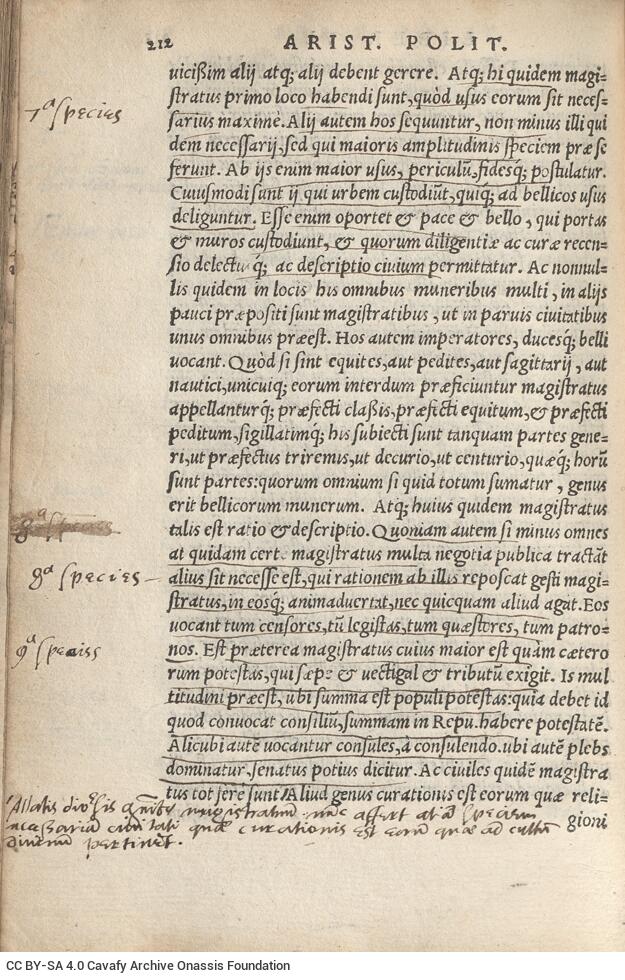 212 ARIST. POLIT.
uicißim alij atq; alij debent gerere. Atq; hi quidem magi-
stratus primo loco habendi sunt, quòd usus eorum sit neces-
7ª species
sarius maximè. Alij autem hos sequuntur, non minus illi qui
dem necessarij, sed qui maioris amplitudinis speciem præ se
ferunt. Ab ijs enim maior usus, periculū, fidesq; postulatur.
Cuiusmodi sunt ij qui urbem custodiūt, quiq; ad bellicos usus
deliguntur. Esse enim oportet & pace & bello, qui portas
& muros custodiunt, & quorum diligentiæ ac curæ recen-
sio delectusq; ac descriptio ciuium permittatur. Ac nonnul-
lis quidem in locis his omnibus muneribus multi, in alijs
pauci præpositi sunt magistratibus, ut in paruis ciuitatibus
unus omnibus præest. Hos autem imperatores, ducesq; belli
uocant. Quòd si sint equites, aut pedites, aut sagittarij, aut
nautici, unicuiq; eorum interdum præficiuntur magistratus
appellanturq; præfecti claßis, præfecti equitum, & præfecti
peditum, sigillatimq; his subiecti sunt tanquam partes gene-
ri, ut præfectus triremis, ut decurio, ut centurio, quæq; horū
sunt partes: quorum omnium si quid totum sumatur, genus
erit bellicorum munerum. Atq; huius quidem magistratus
8ª species
talis est ratio & descriptio. Quoniam autem si minus omnes
at quidam certe magistratus multa negotia publica tractāt
8ª species
alius sit necesse est, qui rationem ab illis reposcat gesti magi-
stratus, in eosq; animaduertat, nec quicquam aliud agat. Eos
uocant tum censores, tū legistas, tum quæstores, tum patro-
9ª species
nos. Est præterea magistratus cuius maior est quàm cætero
rum potestas, qui sæpe & uectigal & tributū exigit. Is mul
titudini præest, ubi summa est populi potestas: quia debet id
quod conuocat consiliū, summam in Repu. habere potestatē.
Alicubi autē uocantur consules, à consulendo. ubi autē plebs
dominatur, senatus potius dicitur. Ac ciuiles quidē magistra
tus tot fere sunt. Aliud genus curationis est eorum quæ reli-
gioni
magistratuum nunc affert speciem
necessariā ciuitati quæ curationis est eorum quæ ad cultū
diuinum pertinet.
CC BY-SA 4.0 Cavafy Archive Onassis Foundation